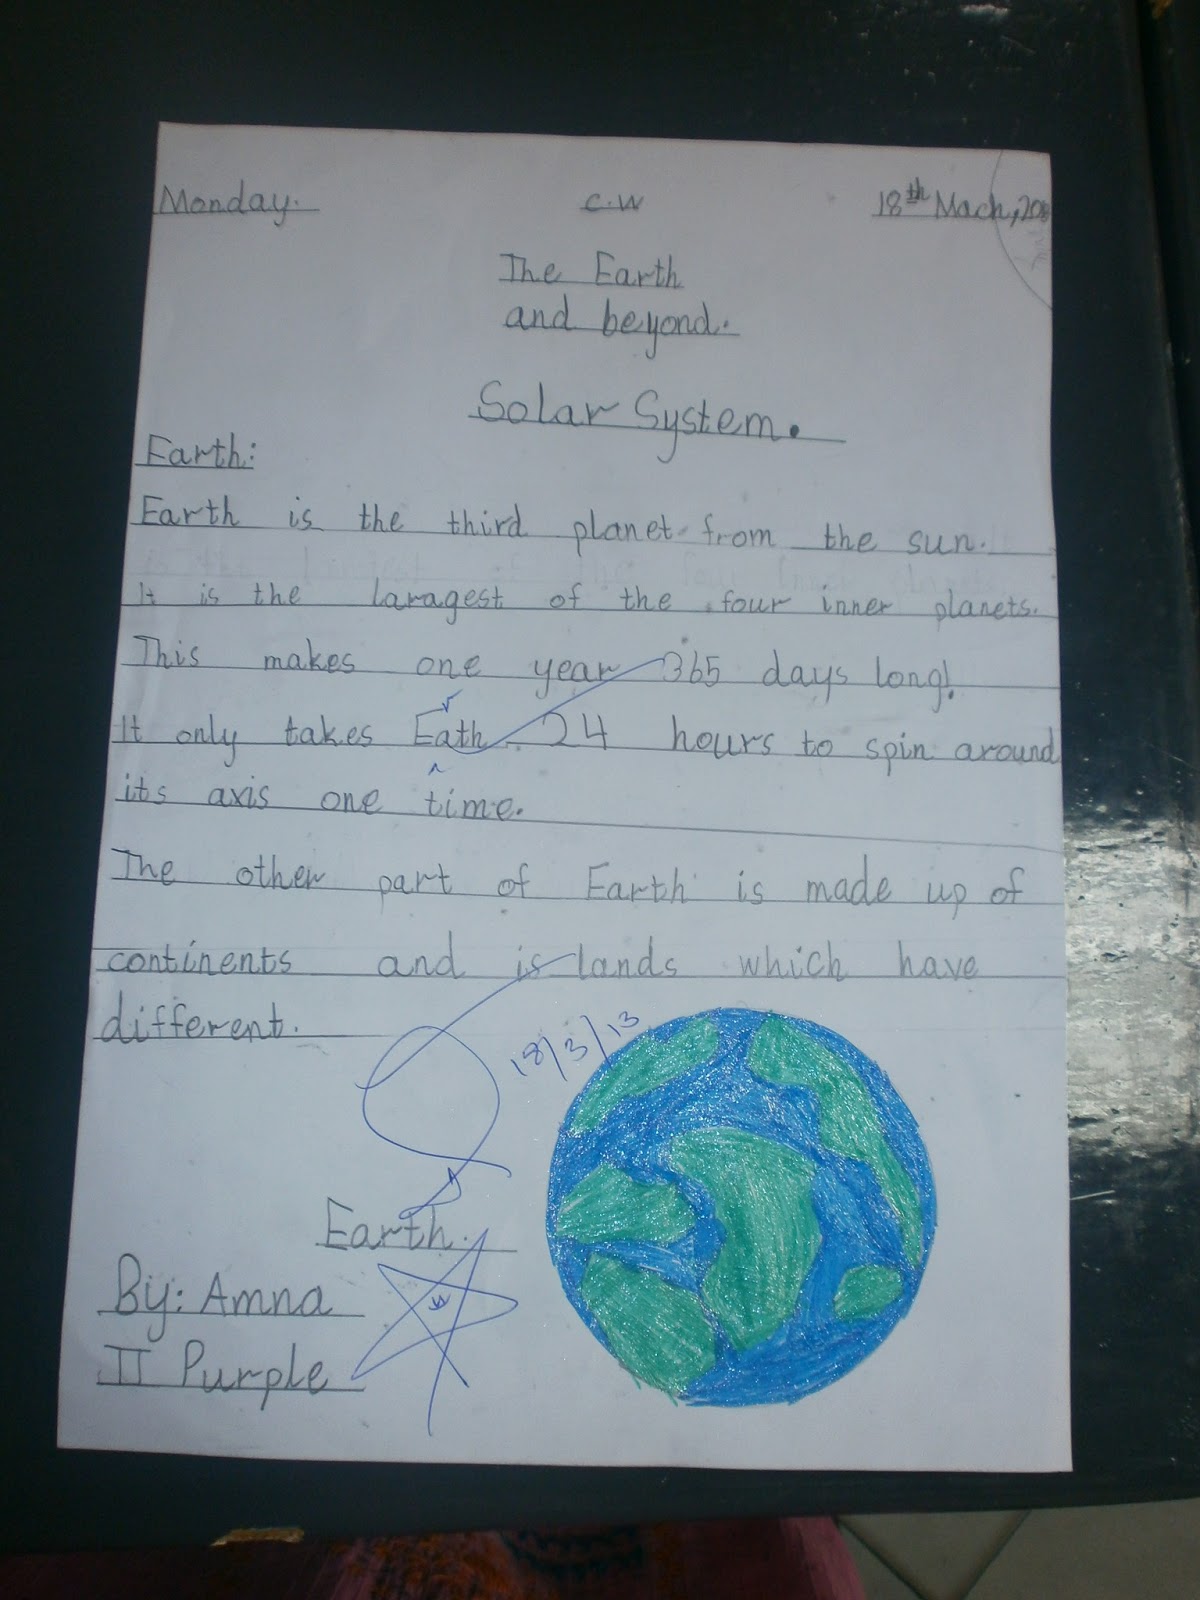 Monday. C.W 18th Mach,
The Earth
and beyond.
Solar System.
Earth:
Earth is the third planet from the sun.
It is the laragest of the four inner planets.
This makes one year 365 days long!
r
It only takes Eath 24 hours to spin around
its axis one time.
The other part of Earth is made up of
continents and is lands which have
different.
18/3/13
Earth.
By: Amna
II Purple